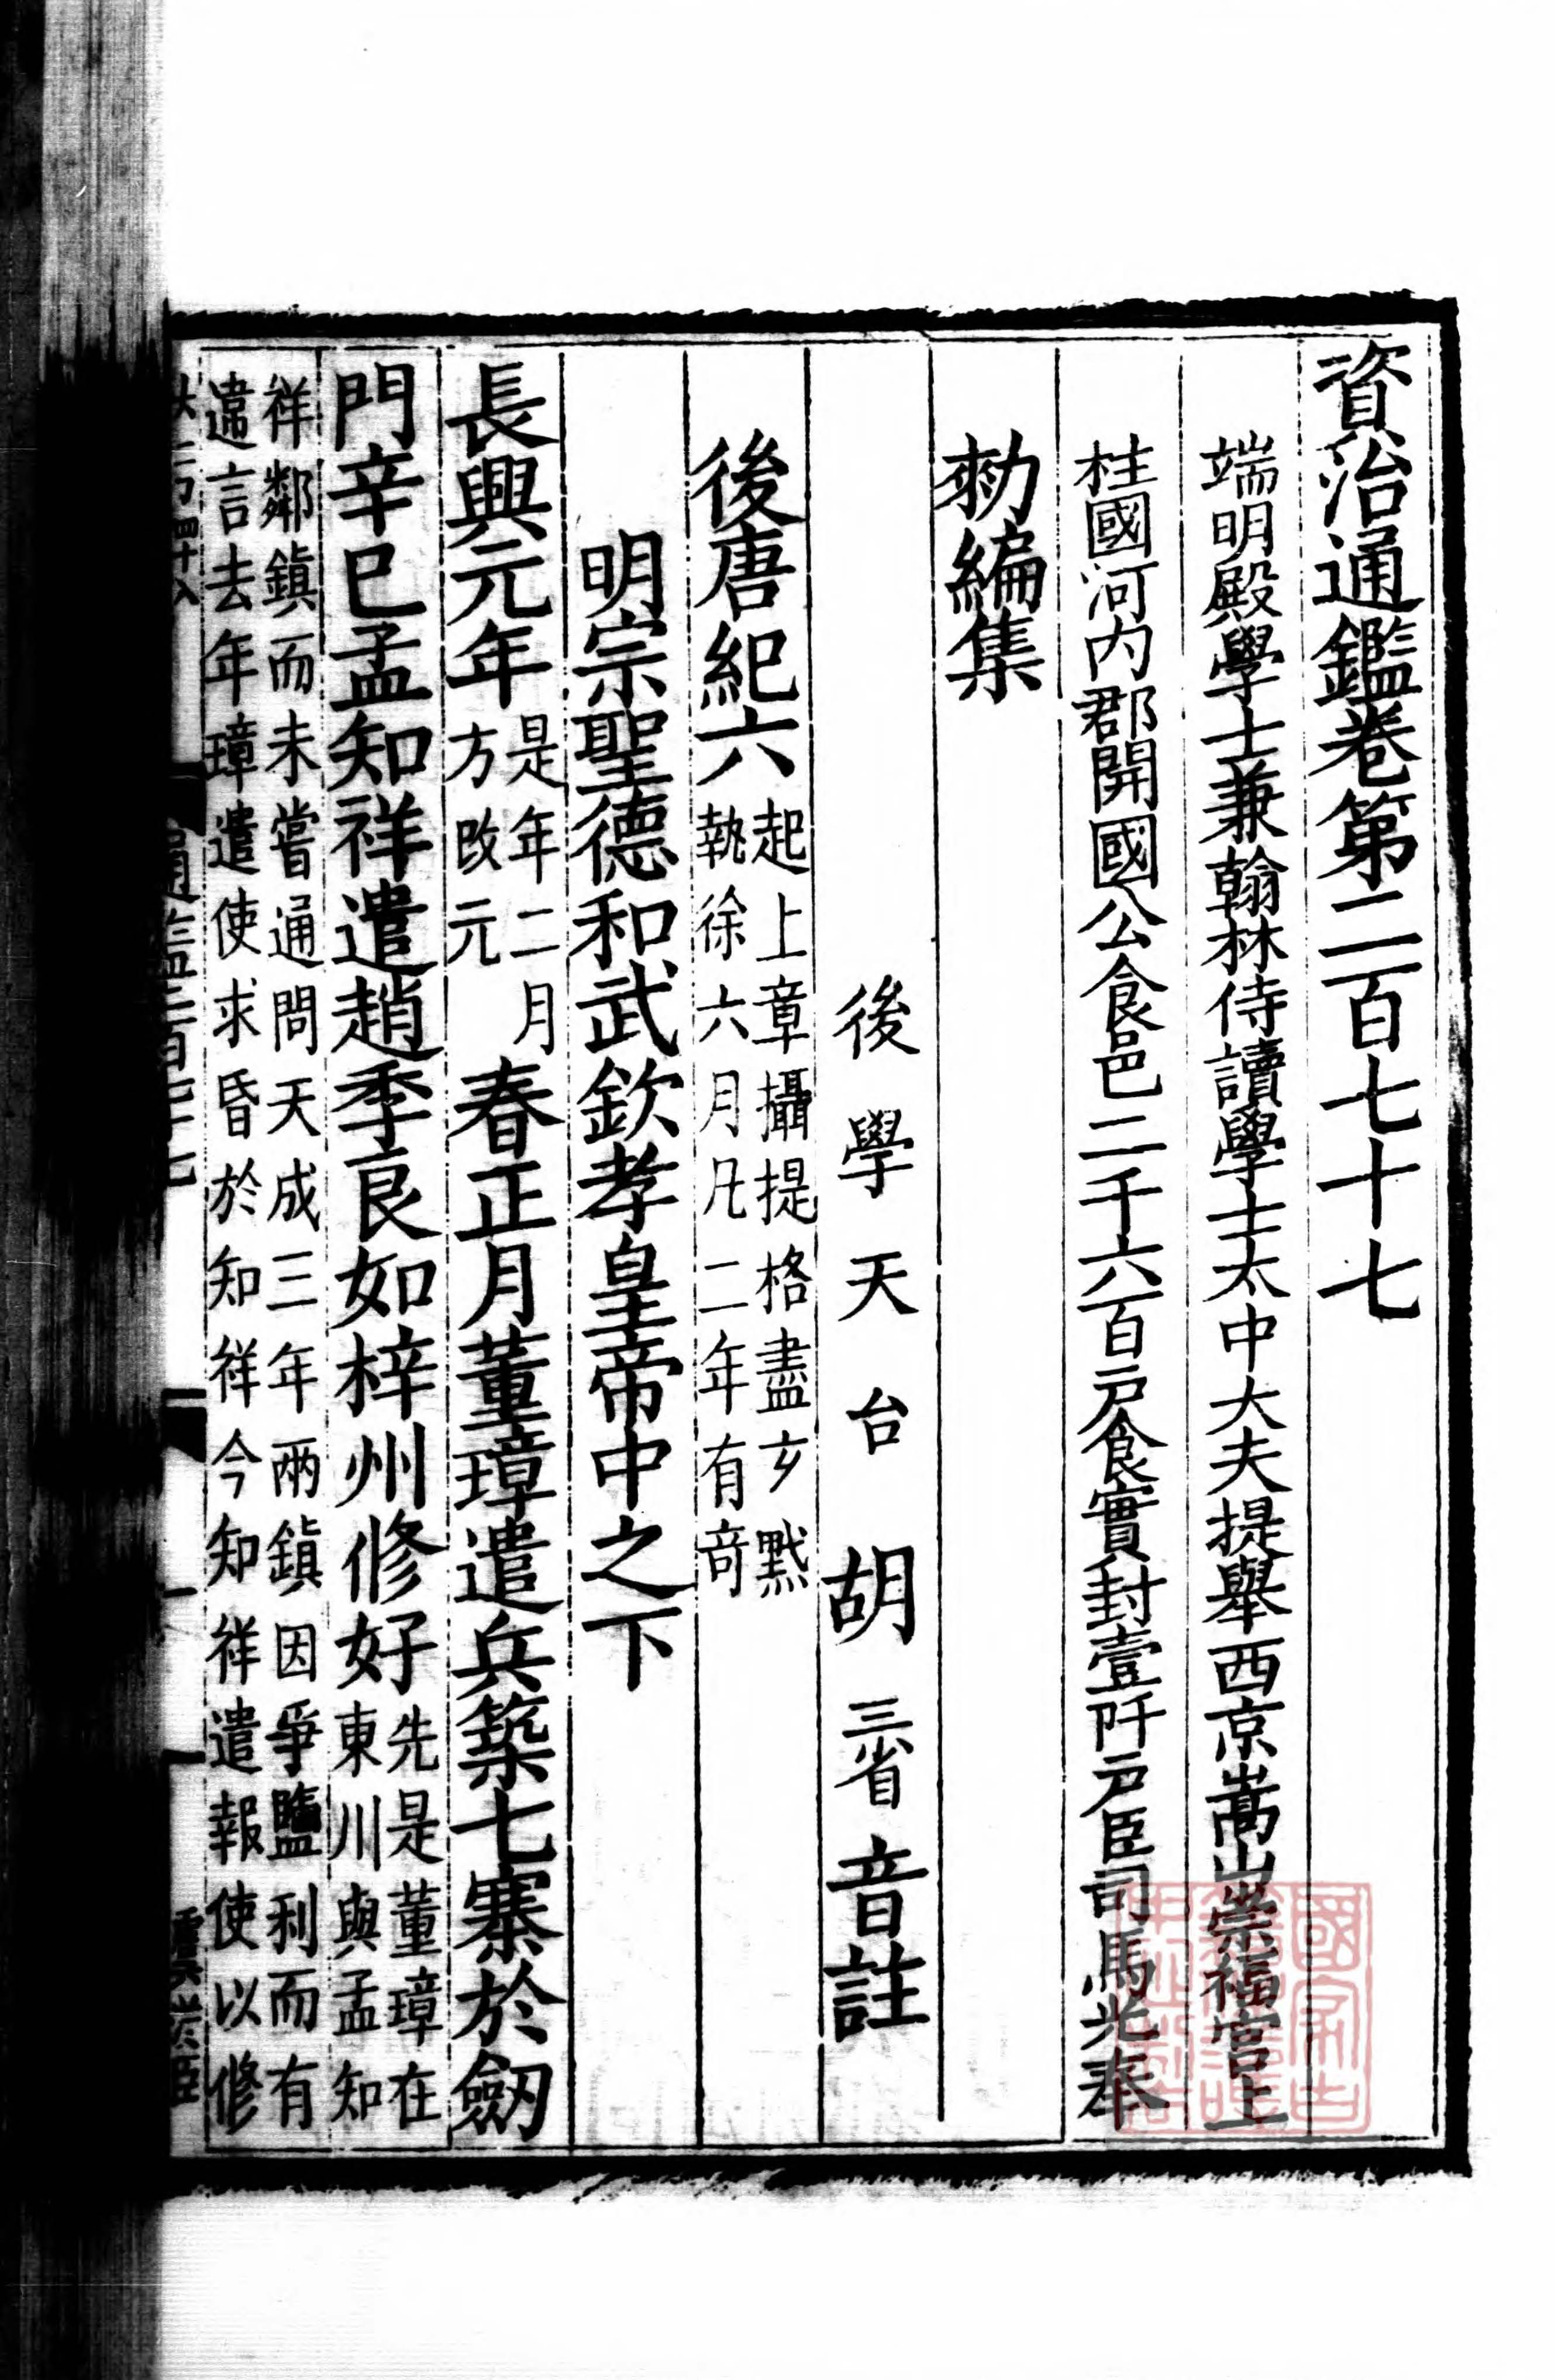 資治通鑑卷第二百七十七
端明殿學士兼翰林侍讀學士太中大夫提舉西京嵩山崇福宮上
柱國河內郡開國公食邑二千六百戶食實封壹阡戶臣司馬光奉
勑編集
後學天台胡三省音註
後唐紀六
起上章攝提格盡玄黓
執徐六月凡二年有奇
明宗聖德和武欽孝皇帝中之下
長興元年
是年二月
方改元
春正月董璋遣兵築七寨於劒
門辛巳孟知祥遣趙季良如梓州修好
先是董璋在
東川與孟知
祥鄰鎮而未嘗通問天成三年兩鎮因爭鹽利而有
違言去年璋遣使求昏於知祥今知祥遣報使以修
通鑑二百七十七